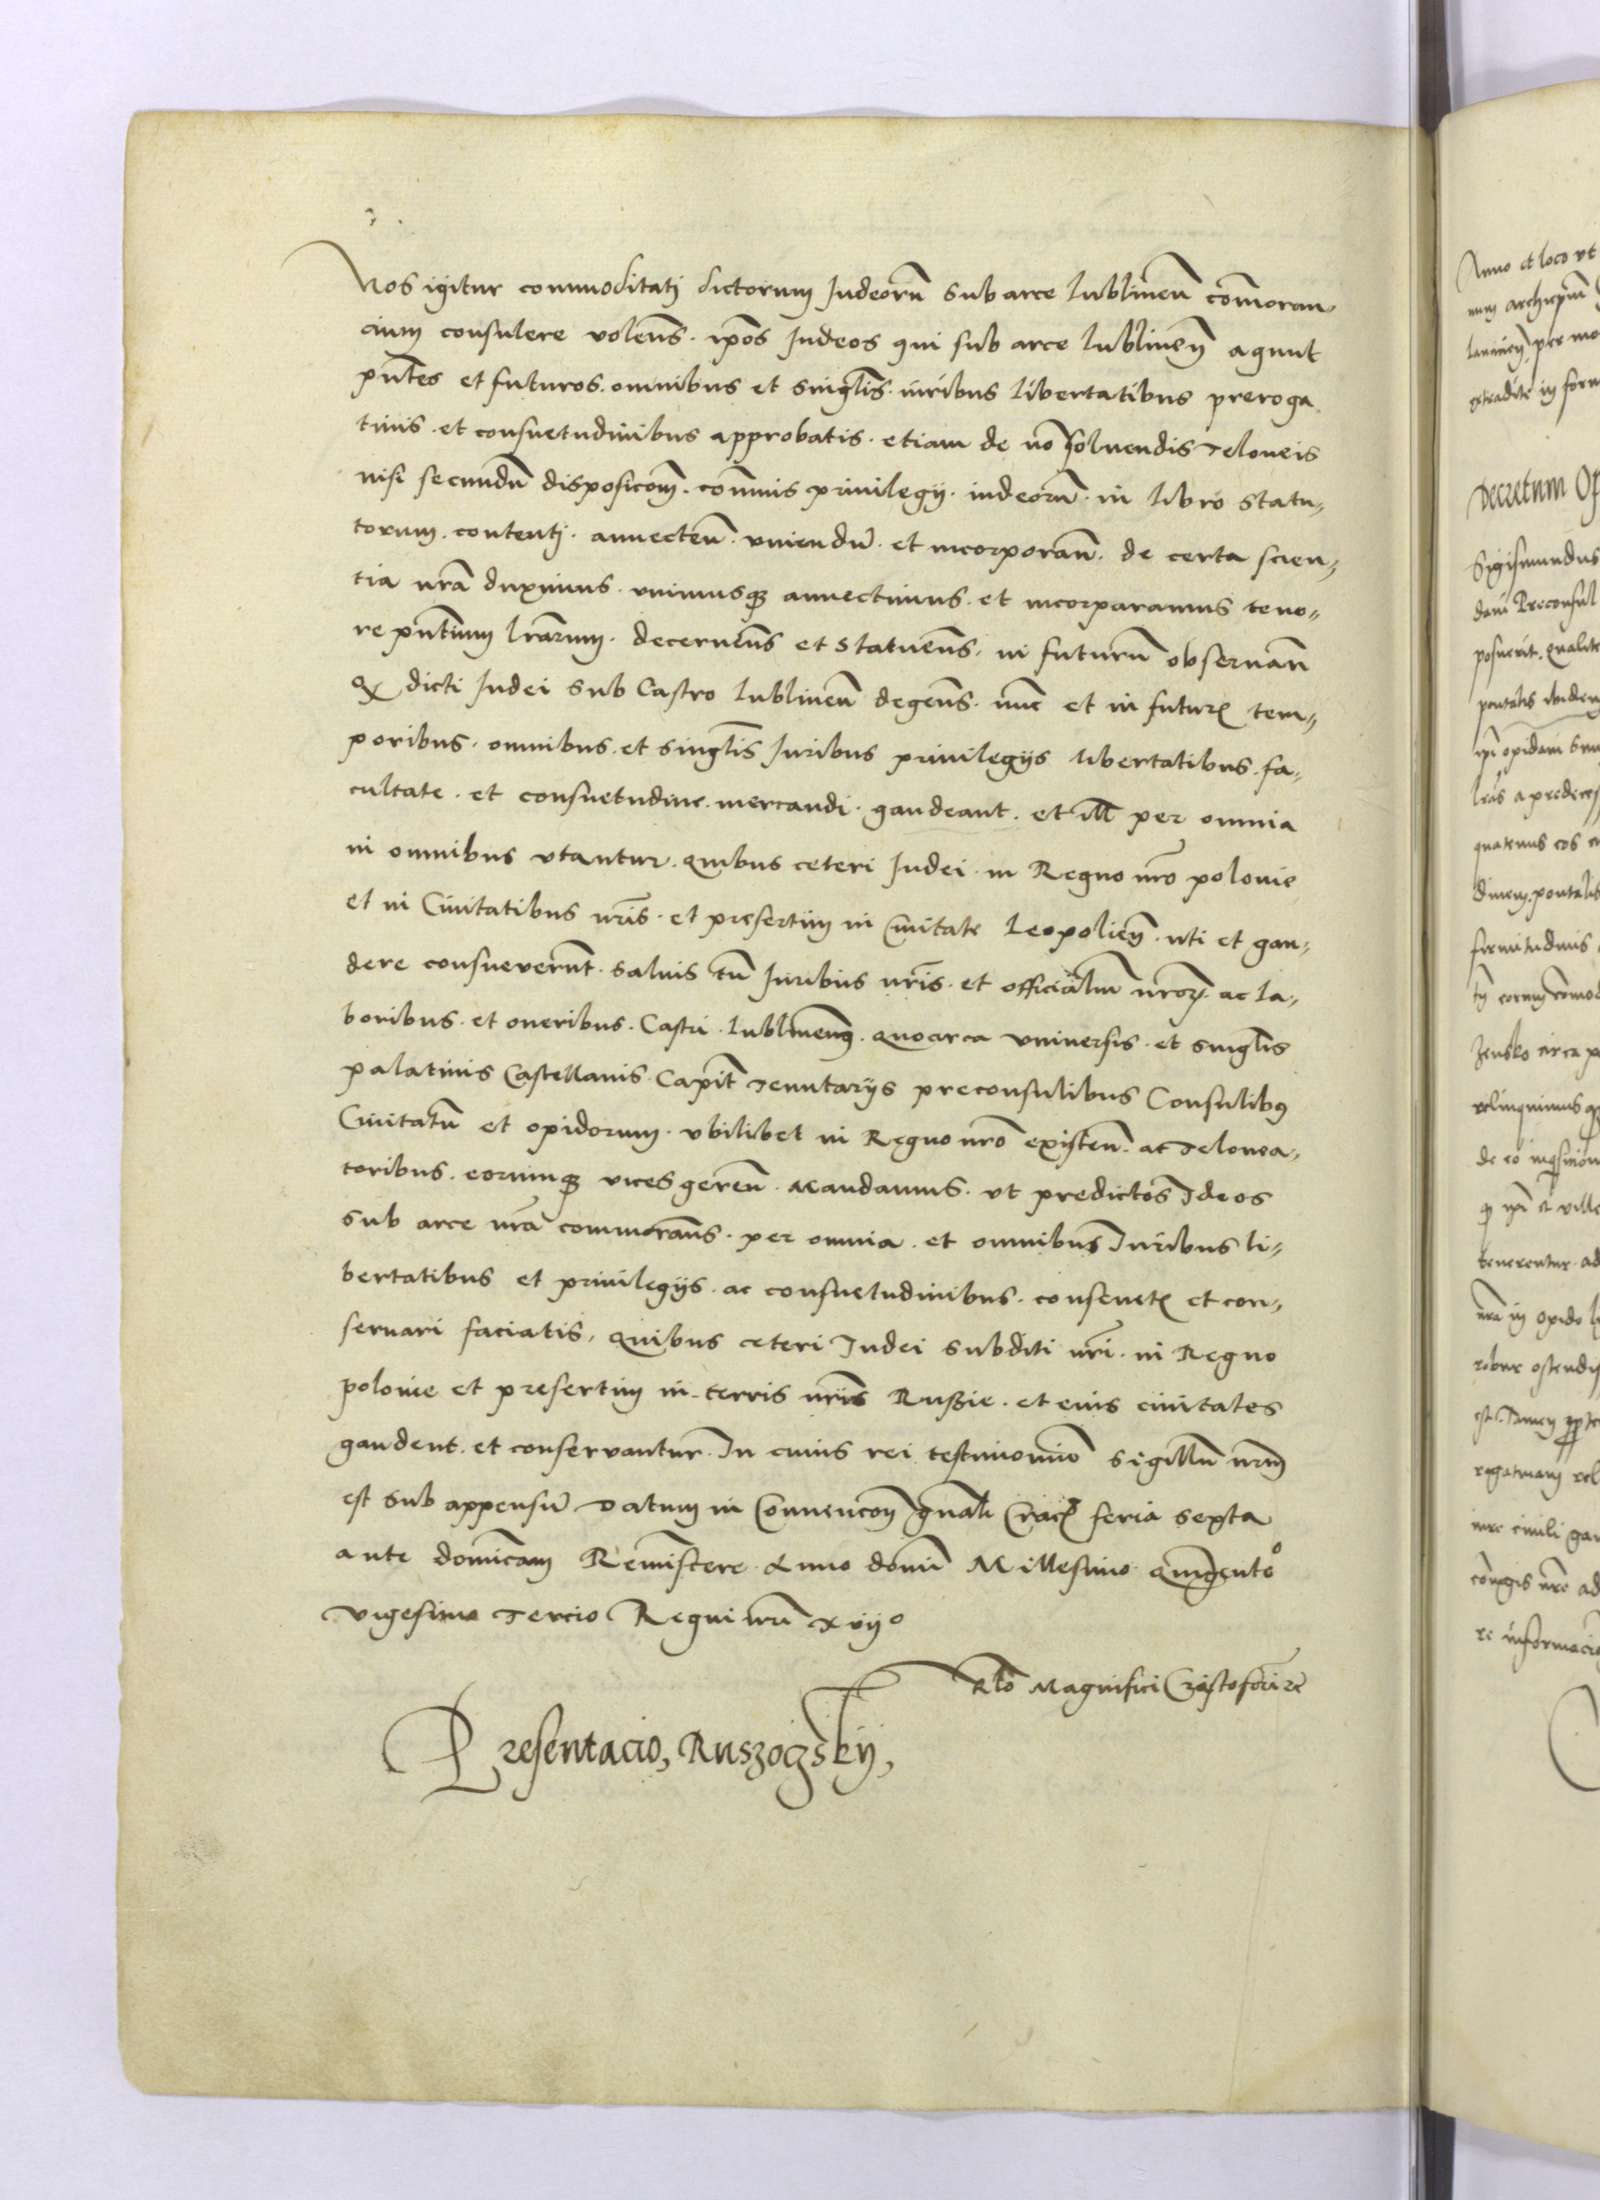 Nos igitur commoditatj dictorum Judeorū sub arce lublineñ com̄oran-
cium consulere volen̄s . ip̄os Judeos qui sub arce lublineñ agunt
pn̄tes et futuros . omnibus et singlīs . iuribus libertatibus preroga
tiuis . et consuetudinibus approbatis . etiam de nō soluendis Teloneis
nisi secundū disposicōm . com̄unis priuilegij . iudeorū . in libro statu-
torum . contentj . annecteñ . vniendū . et incorporañ . de certa scien-
tia nrā duximus . vnimusqꝫ annectimus . et incorporamus teno-
re pn̄tium lrārum . decernen̄s et statuen̄s . in futurū obseruañ
Qꝫ dicti Judei sub Castro lublineñ degen̄s . nūc et in futurꝭ tem-
poribus . omnibus . et singlīs Juribus priuilegijs libertatibus . fa-
cultate . et consuetudine . mercandi . gaudeant . et ill̄ per omnia
in omnibus vtantur . quibus ceteri Judei . in Regno nrō polonie
et in Ciuitatibus nrīs . et presertim in Ciuitate Leopolieñ . vti et gau-
dere consueuerūnt . saluis tn̄ Juribus nrīs . et officialiū nrōꝝ . ac la-
boribus . et oneribus . Castri . lublinenꝰ . quocirca vniuersis . et singlīs
palatinis Castellanis Capit̄ Tenutarijs preconsulibus Consulibꝰ
Ciuitatū et opidorum . vbilibet in Regno nrō existeñ . ac Telonea-
toribus . eorumqꝫ vices gereñ . Mandamus . vt predictos Jdeos
sub arce nrā commoran̄s . per omnia . et omnibus Juribus li-
bertatibus et priuilegijs . ac consuetudinibus . conseruetꝭ et con-
seruari faciatis . quibus ceteri Judei subditi nrī . in Regno
polonie et presertim in terris nrīs Russie . et eius ciuitates
gaudent . et conservantur . In cuius rei testimoniō sigillū nrūm
est sub appensū Datum in Conuencōn gnāli Cracꝭ feria sexta
ante domīcam Remīscere Anno domī Millesimo quīgentᵒ
vigesimo Tercio Regni nrī xvijᵒ
Rlō Magnifici Cristoferi ꝛc
Presentacio, Ruszoczskij,
Anno et loco vt
num archiepūm
per mo
extradite in form
Decretum Op
Sigismundus
dam Preconsul
posuerit . qualite
ip̄i opidani
lrās a predeces
quatenus eos
firmitudinis
circa p
relinquimusqꝫ
teneretur ad
nrā in opido
robur ostendis
mre ciuili gau
nrō ad
re informacio